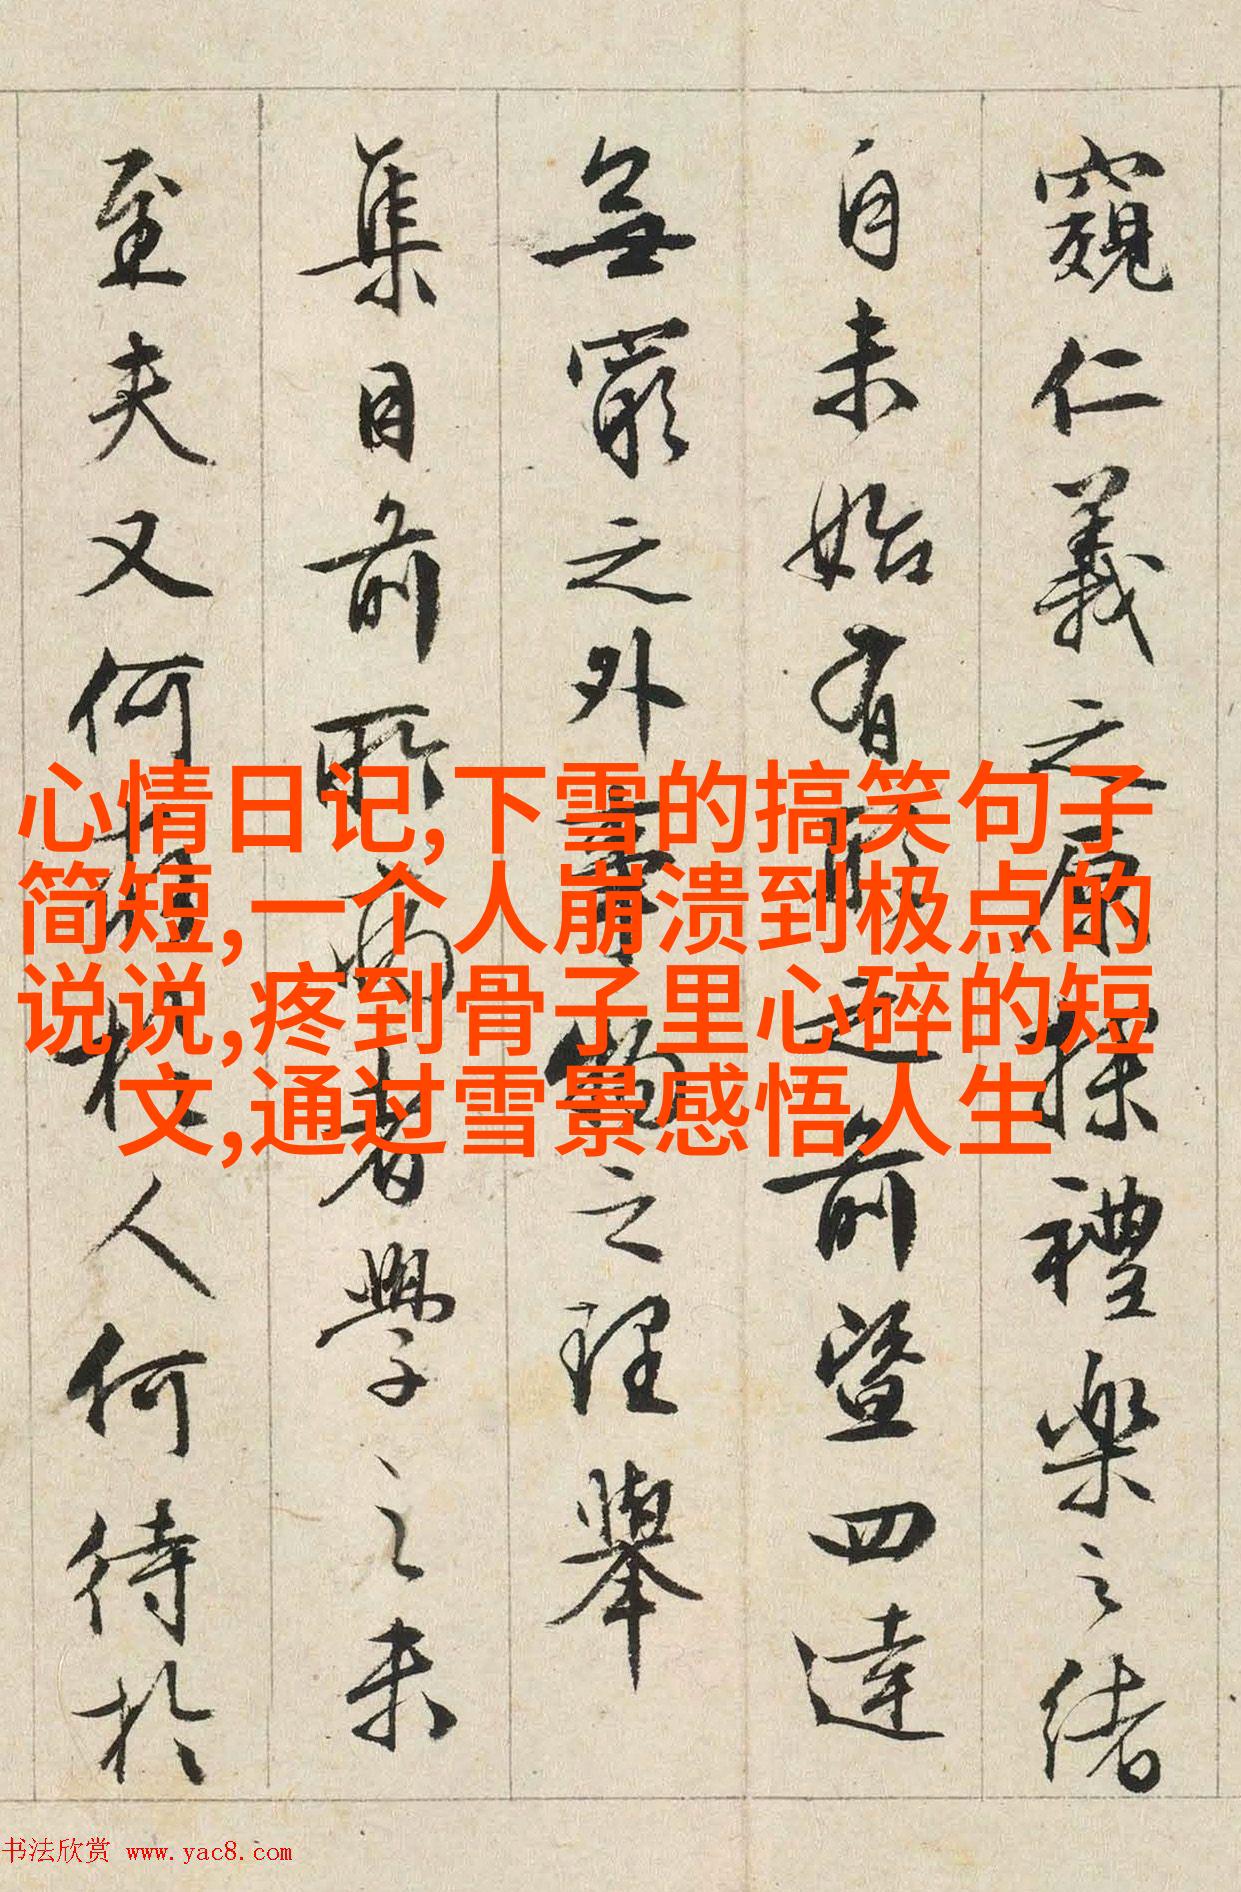 窺仁義之原探禮樂之緒
自未始有前暨四達
無窮之外事物之理舉
集目前所病者學之未
至夫又何於人何待於
心情日记,下雪的搞笑句子
简短,一个人崩溃到极点的
说说,疼到骨子里心碎的短
文,通过雪景感悟人生
书法欣赏 www.yac8.com